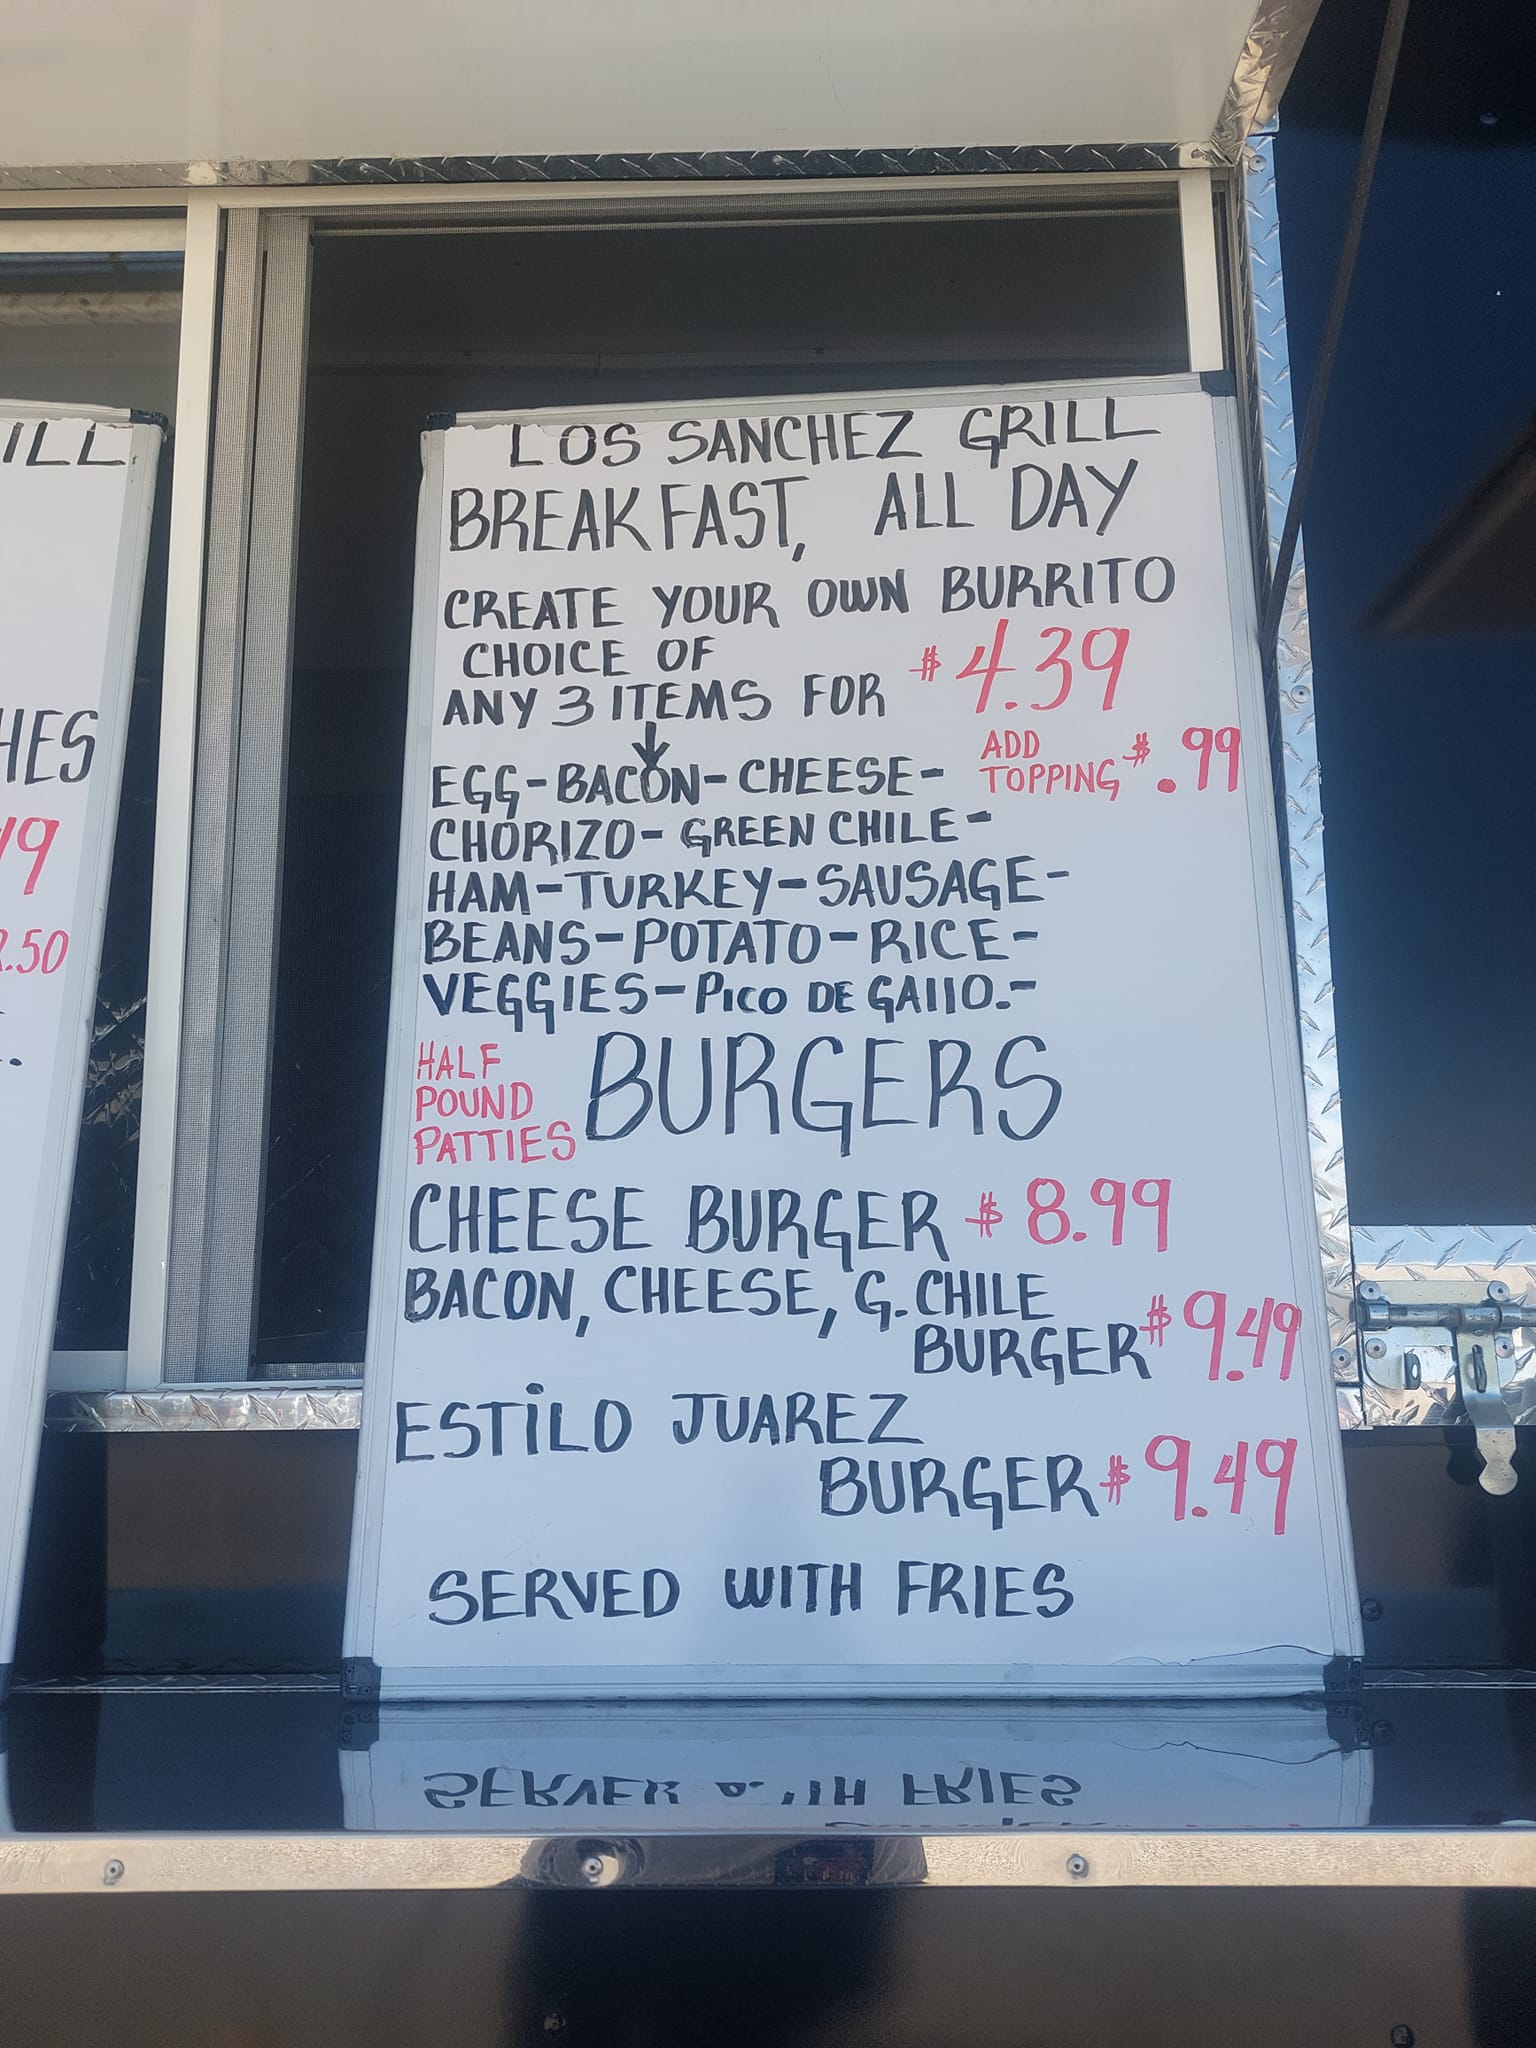 LOS SANCHEZ GRILL
BREAKFAST, ALL DAY
CREATE YOUR OWN BURRITO
CHOICE OF
ANY 3 ITEMS FOR $4.39
ADD
TOPPING $.99
EGG-BACON-CHEESE-
CHORIZO-GREEN CHILE-
HAM-TURKEY-SAUSAGE-
BEANS-POTATO-RICE-
VEGGIES-PICO DE GAIIO.-
HALF
POUND
PATTIES
BURGERS
CHEESE BURGER $8.99
BACON, CHEESE, G. CHILE
BURGER $9.49
ESTiLO JUAREZ
BURGER $9.49
SERVED WITH FRIES